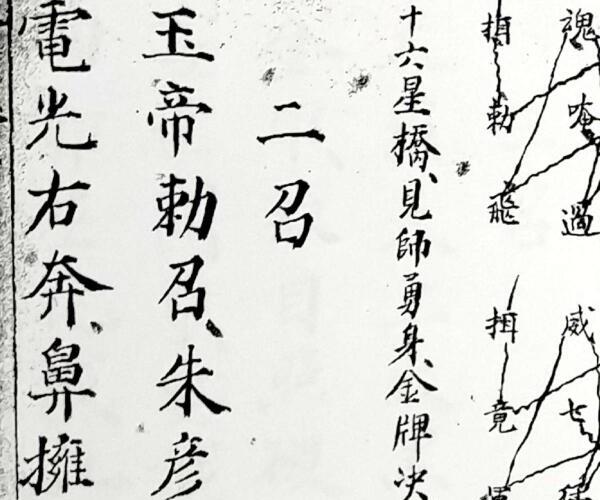 魂 唅 過 威 七
揖 勅 飛 揖 竟
十六星橋、見師勇身、金牌决
二召
玉帝勅召、朱彦
電光右奔、鼻擁